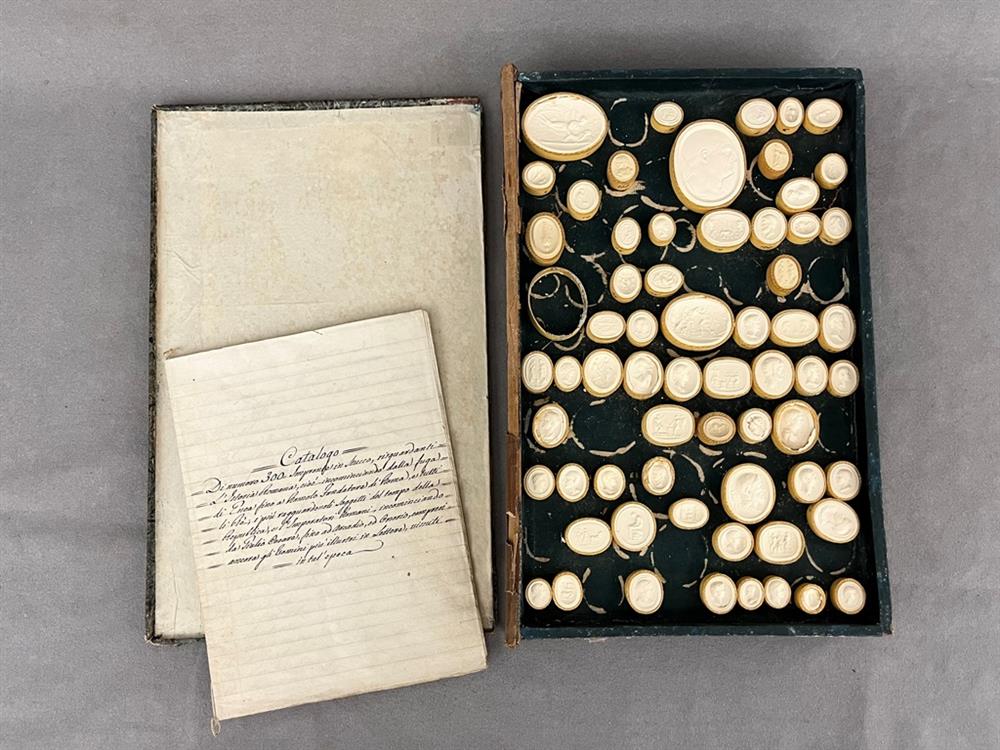 Catalogo
Di numero 300 Impronte in Stucco, riguardanti
l'Istoria Romana, cioè incominciando dalla fuga
di Enea fino a Romolo Fondatore di Roma, e tutti
li Rè, i più ragguardevoli Soggetti del tempo della
Republica, e l'Imperatori Romani incominciando
da Giulio Cesare, fino ad Arcadio, ed Onorio,
ancora gl'Uomini più illustri in Lettere,
in tal'epoca